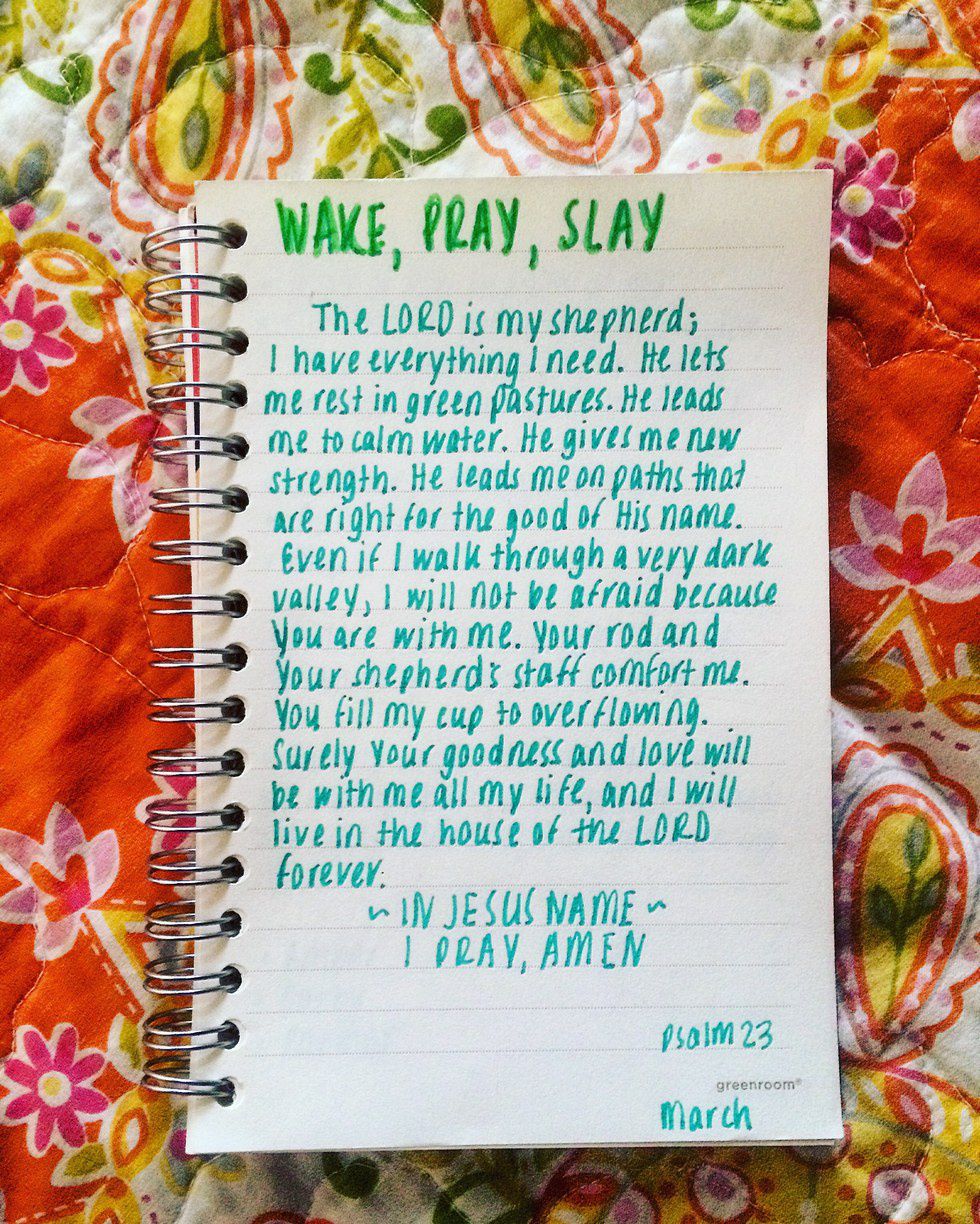 WAKE, PRAY, SLAY
The LORD is my shepherd;
I have everything I need. He lets
me rest in green pastures. He leads
me to calm water. He gives me new
strength. He leads me on paths that
are right for the good of His name.
Even if I walk through a very dark
valley, I will not be afraid because
You are with me. Your rod and
Your shepherd's staff comfort me.
You fill my cup to overflowing.
Surely Your goodness and love will
be with me all my life, and I will
live in the house of the LORD
forever.
~ IN JESUS NAME ~
I PRAY, AMEN
Psalm 23
greenroom®
March